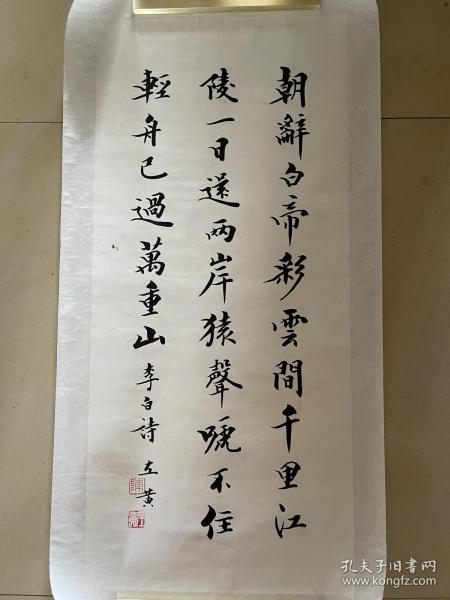 朝辭白帝彩雲間千里江
陵一日還兩岸猿聲嗁不住
輕舟已過萬重山 李白詩 左黄
孔夫子旧书网
www.kongfz.com